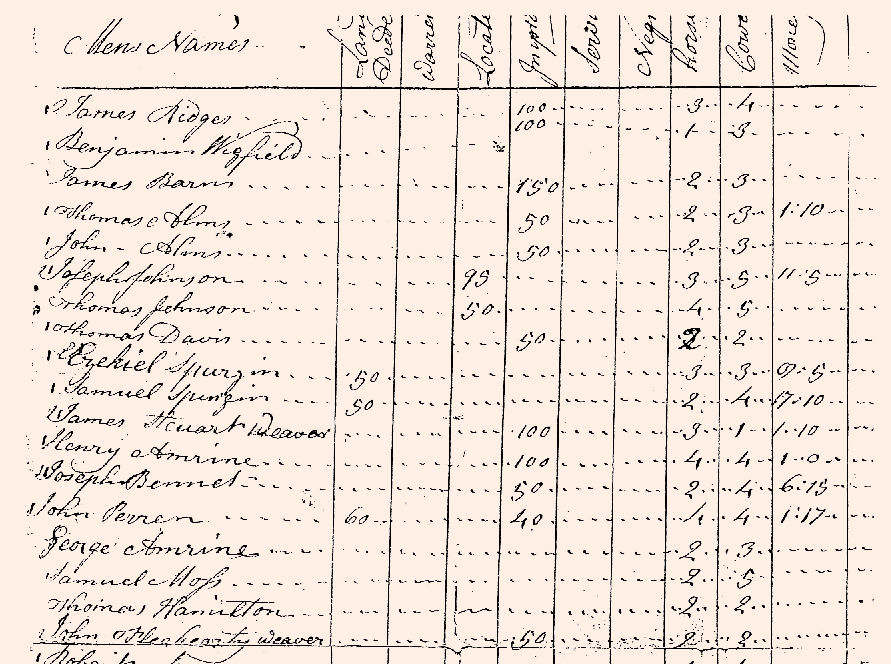 Mens Names Deede Warren Locati Serv Negr horse Cowe More
James Ridges 100 3 4
Benjamin Wigfield 100 1 3
James Barns 150 2 3
Thomas Alms 50 2 3 1:10
John - Alms 50 2 3
Joseph Johnson 95 3 5 11:5
Thomas Johnson 50 4 5
Thomas Davis 50 2 2
Ezekiel Spurgin 50 3 3 9:5
Samuel Spurgin 50 2 4 17:10
James Stuart Weaver 100 3 1 1:10
Henry Amrine 100 4 4 1:0
Joseph Bennet 50 2 4 6:15
John Perren 60 40 4 1:17
George Amrine 2 3
Samuel Moss 2 5
Thomas Hamilton 2 2
John weaver 50 2 2